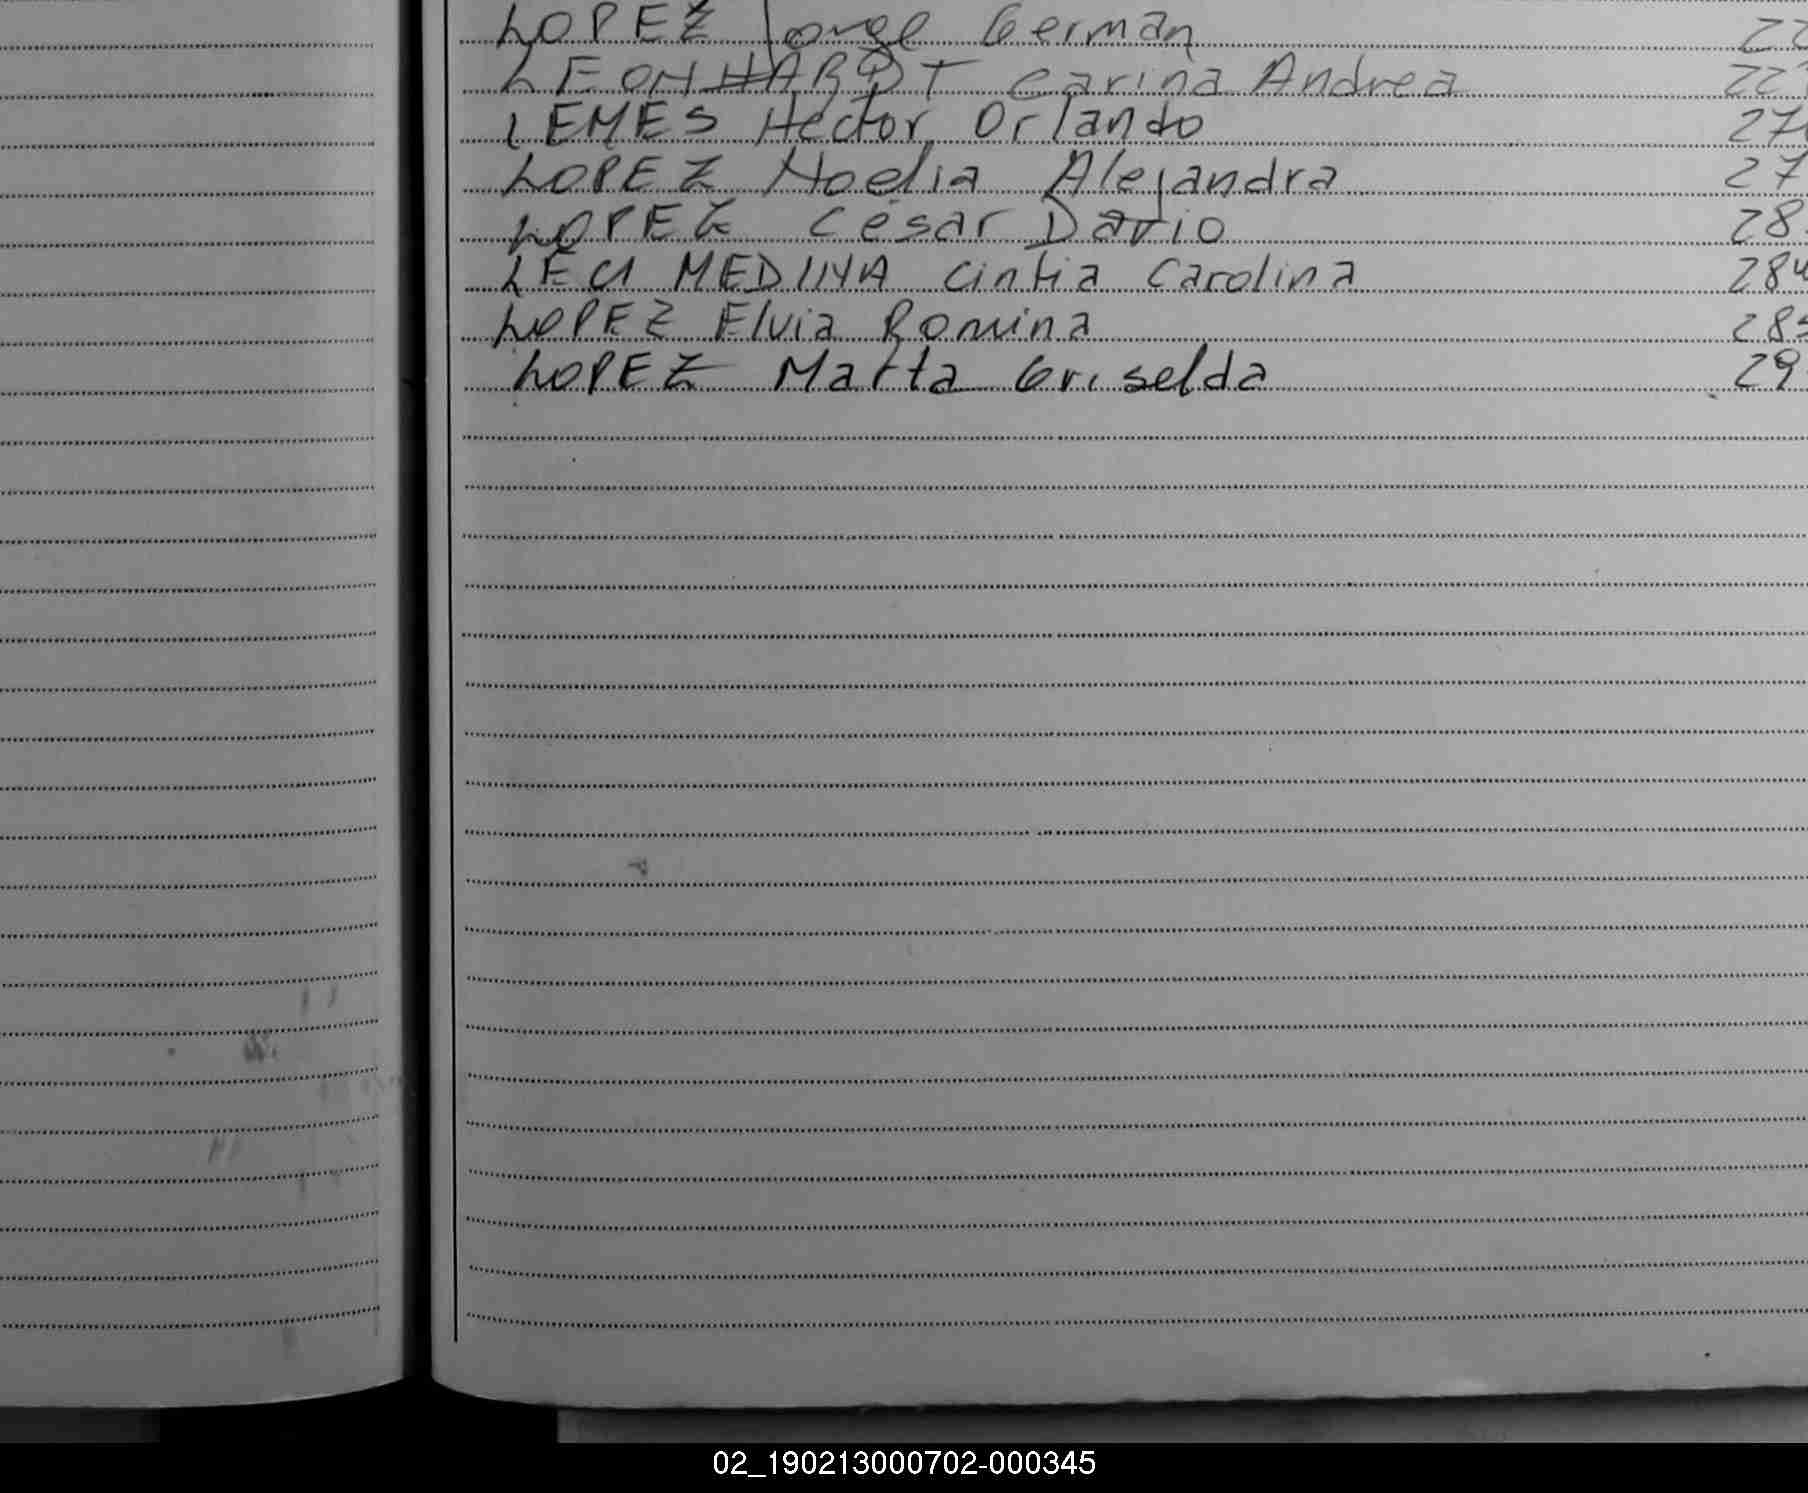 LOPEZ Jorge Germán 22
LEONHARDT Carina Andrea 22
LEMES Hector Orlando 27
LOPEZ Noelia Alejandra 27
LOPEZ César Darío 28
LECI MEDINA Cintia Carolina 284
LOPEZ Elvia Romina 285
LOPEZ Marta Griselda 29
02_190213000702-000345